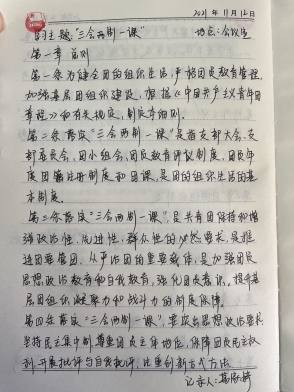 2021年11月12日
习主题:“三会两制一课” 地点:会议室
第一章 总则
第一条 为健全团的组织生活,严格团员教育管理,
加强基层团组织建设,根据《中国共产主义青年团
章程》和有关规定,制定本细则。
第二条 落实“三会两制一课”是指支部大会、支
部委员会、团小组会、团员教育评议制度、团员年
度团籍注册制度和团课,是团的组织生活的基
本制度。
第三条 落实“三会两制一课”,是共青团保持和增
强政治性、先进性、群众性的必然要求,是推
进团要管团、从严治团的重要载体,是加强团员
思想政治教育和自我教育,强化团员意识,提升基
层团组织凝聚力和战斗力的制度保障。
第四条 落实“三会两制一课”,要突出思想政治要求
坚持民主集中制,尊重团员主体地位,保障团员民主权
利,开展批评与自我批评,注重创新方式方法
记录人: